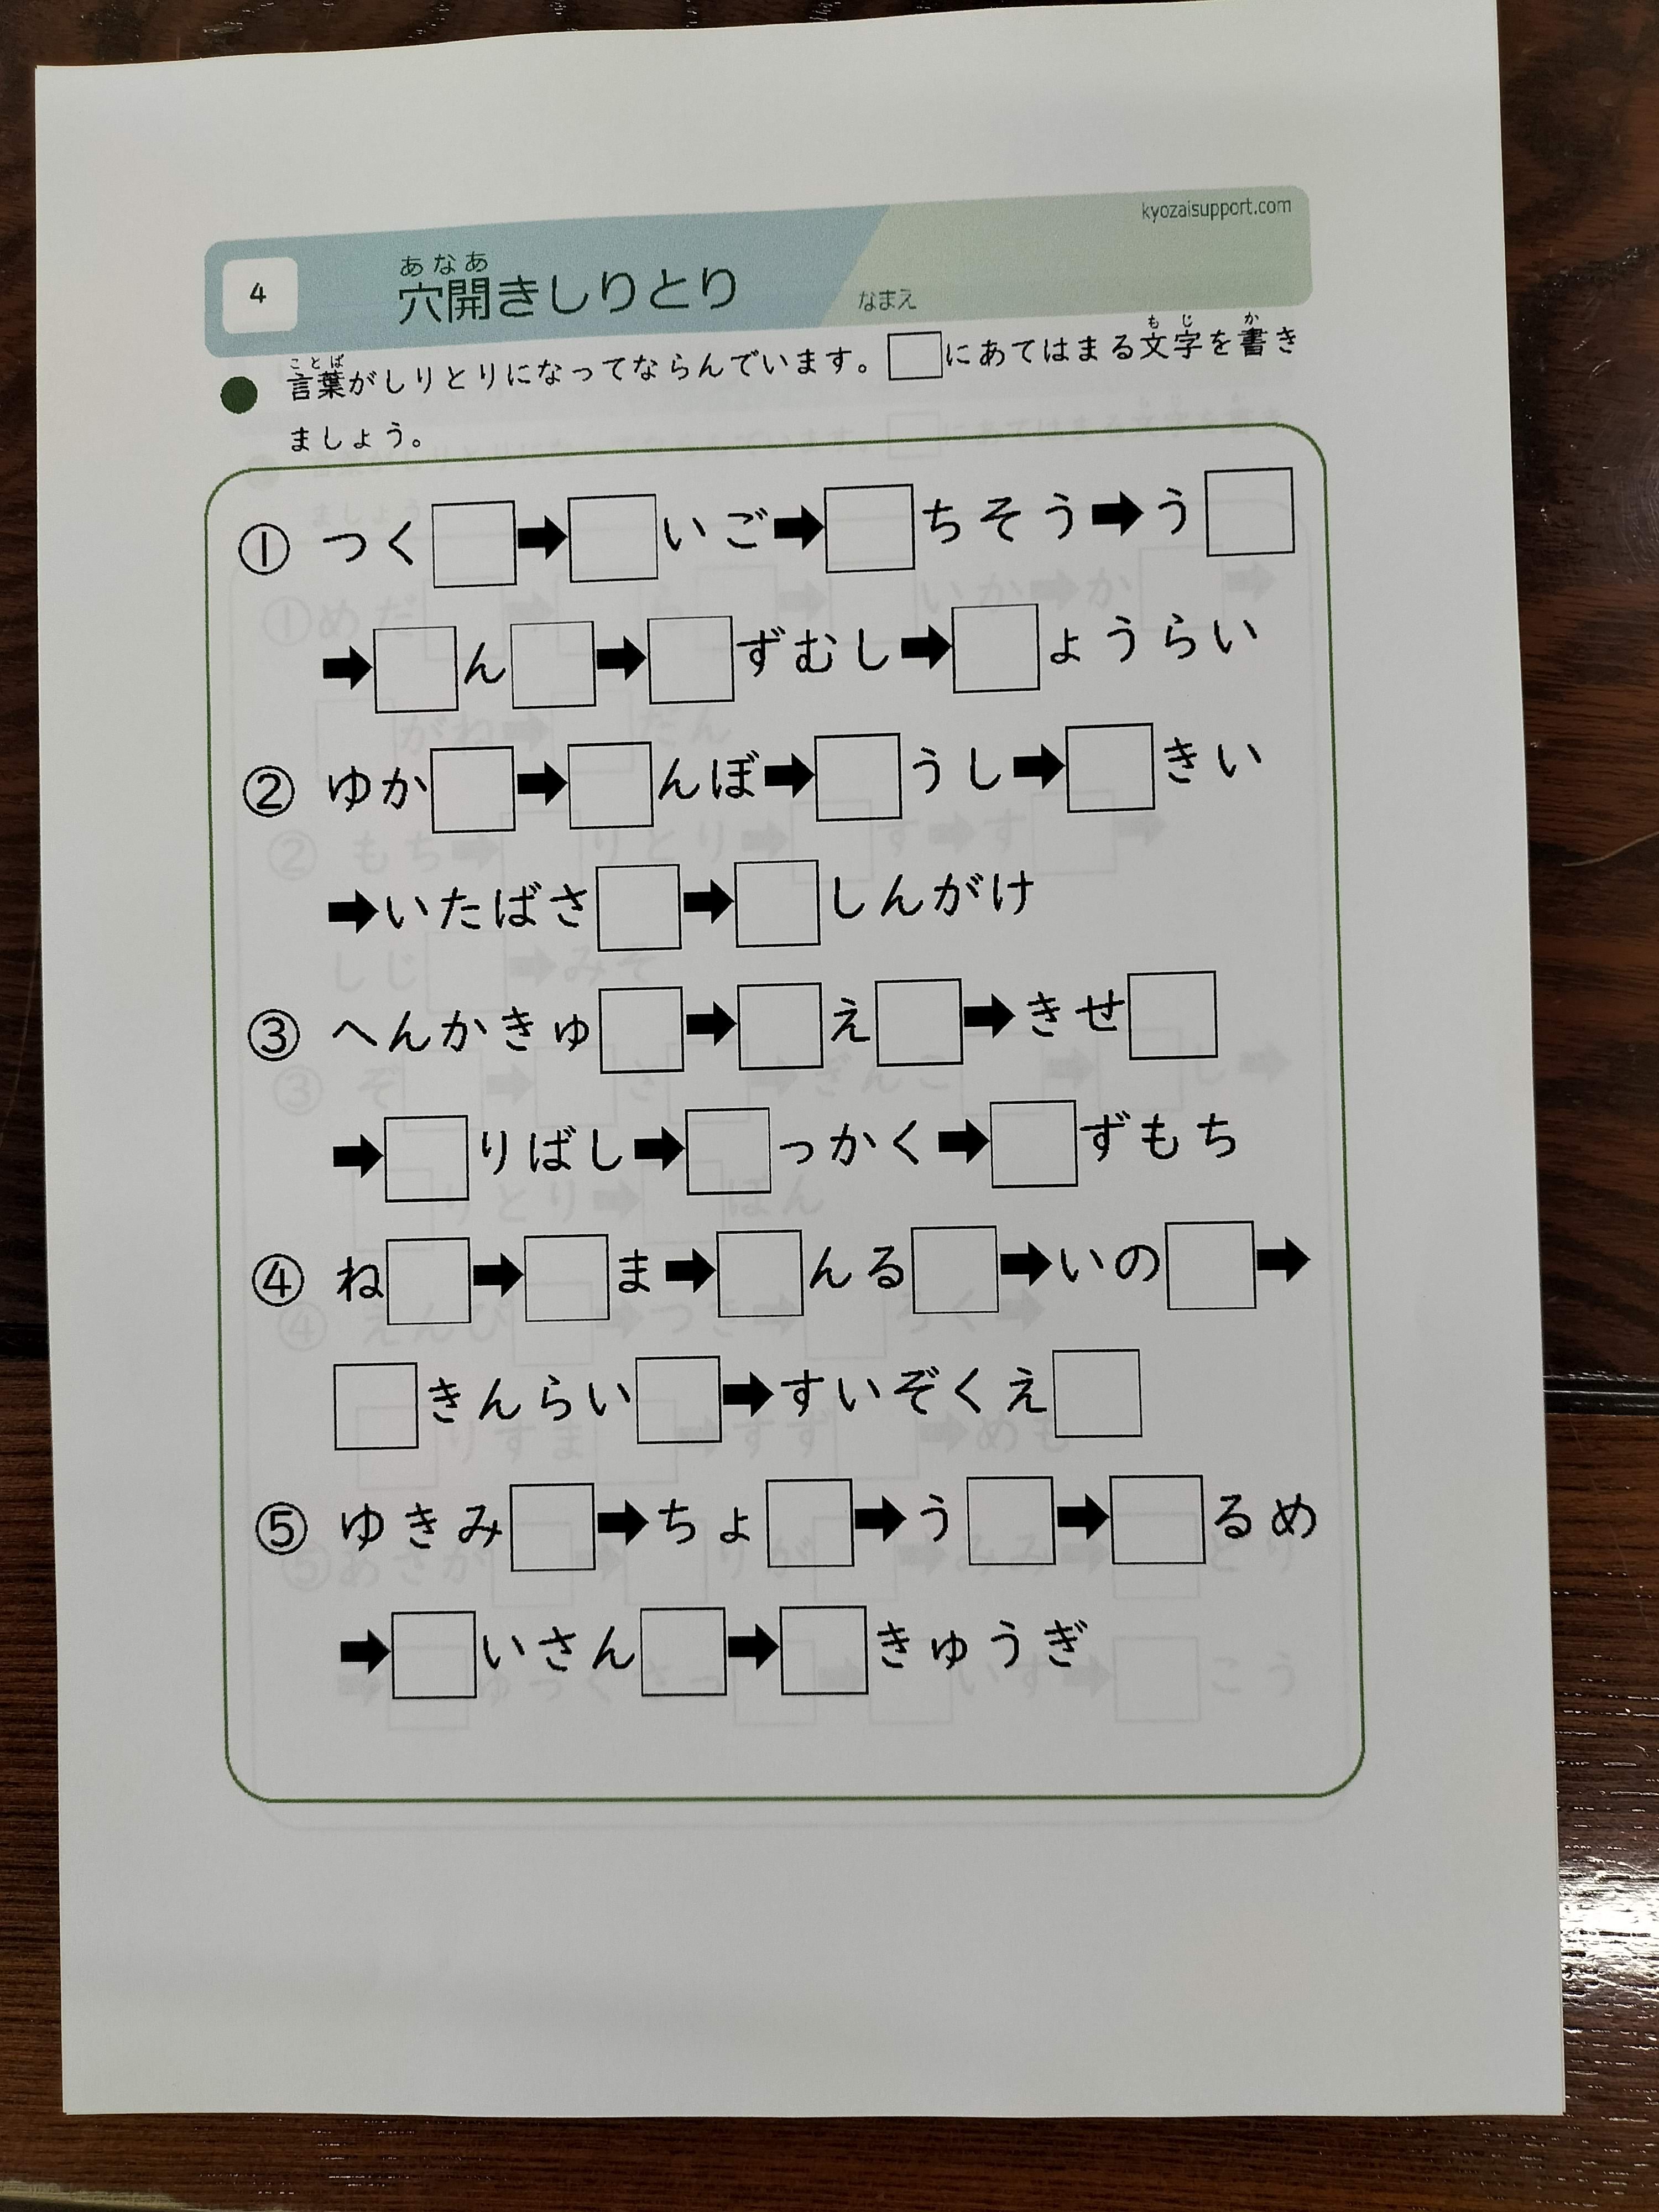 kyozaisupport.com
4
あなあ
穴開きしりとり
なまえ
ことば もじ か
言葉がしりとりになってならんでいます。□にあてはまる文字を書き
ましょう。
① つく□➡□いご➡□ちそう➡う□
➡□ん□➡□ずむし➡□ょうらい
② ゆか□➡□んぼ➡□うし➡□きい
➡いたばさ□➡□しんがけ
③ へんかきゅ□➡□え□➡きせ□
➡□りばし➡□っかく➡□ずもち
④ ね□➡□ま➡□んる□➡いの□➡
□きんらい□➡すいぞくえ□
⑤ ゆきみ□➡ちょ□➡う□➡□るめ
➡□いさん□➡□きゅうぎ